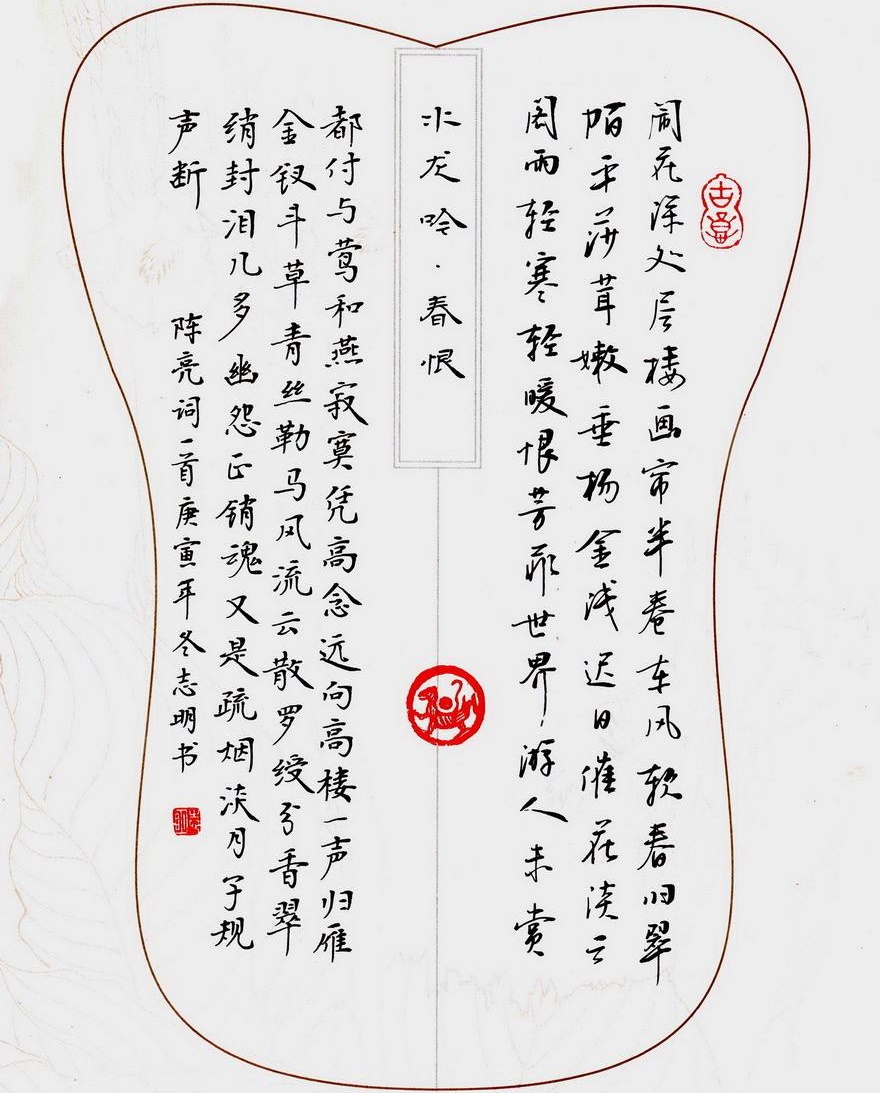 闹花深处层楼画帘半卷东风软春归翠
陌平莎茸嫩垂杨金浅迟日催花淡云
阁雨轻寒轻暖恨芳菲世界游人未赏
水龙吟·春恨
都付与莺和燕寂寞凭高念远向高楼一声归雁
金钗斗草青丝勒马风流云散罗绶分香翠
绡封泪几多幽怨正销魂又是疏烟淡月子规
声断
陈亮词一首庚寅年冬志明书